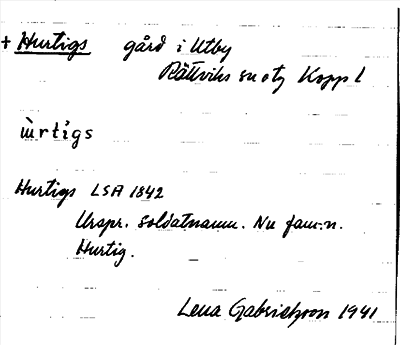 + Hurtigs gård i Utby
Rättviks sn o tg Kopp l
ùrtigs
Hurtigs LSA 1842
Urspr. soldatnamn. Nu fam.n.
Hurtig.
Lena Gabrielsson 1941